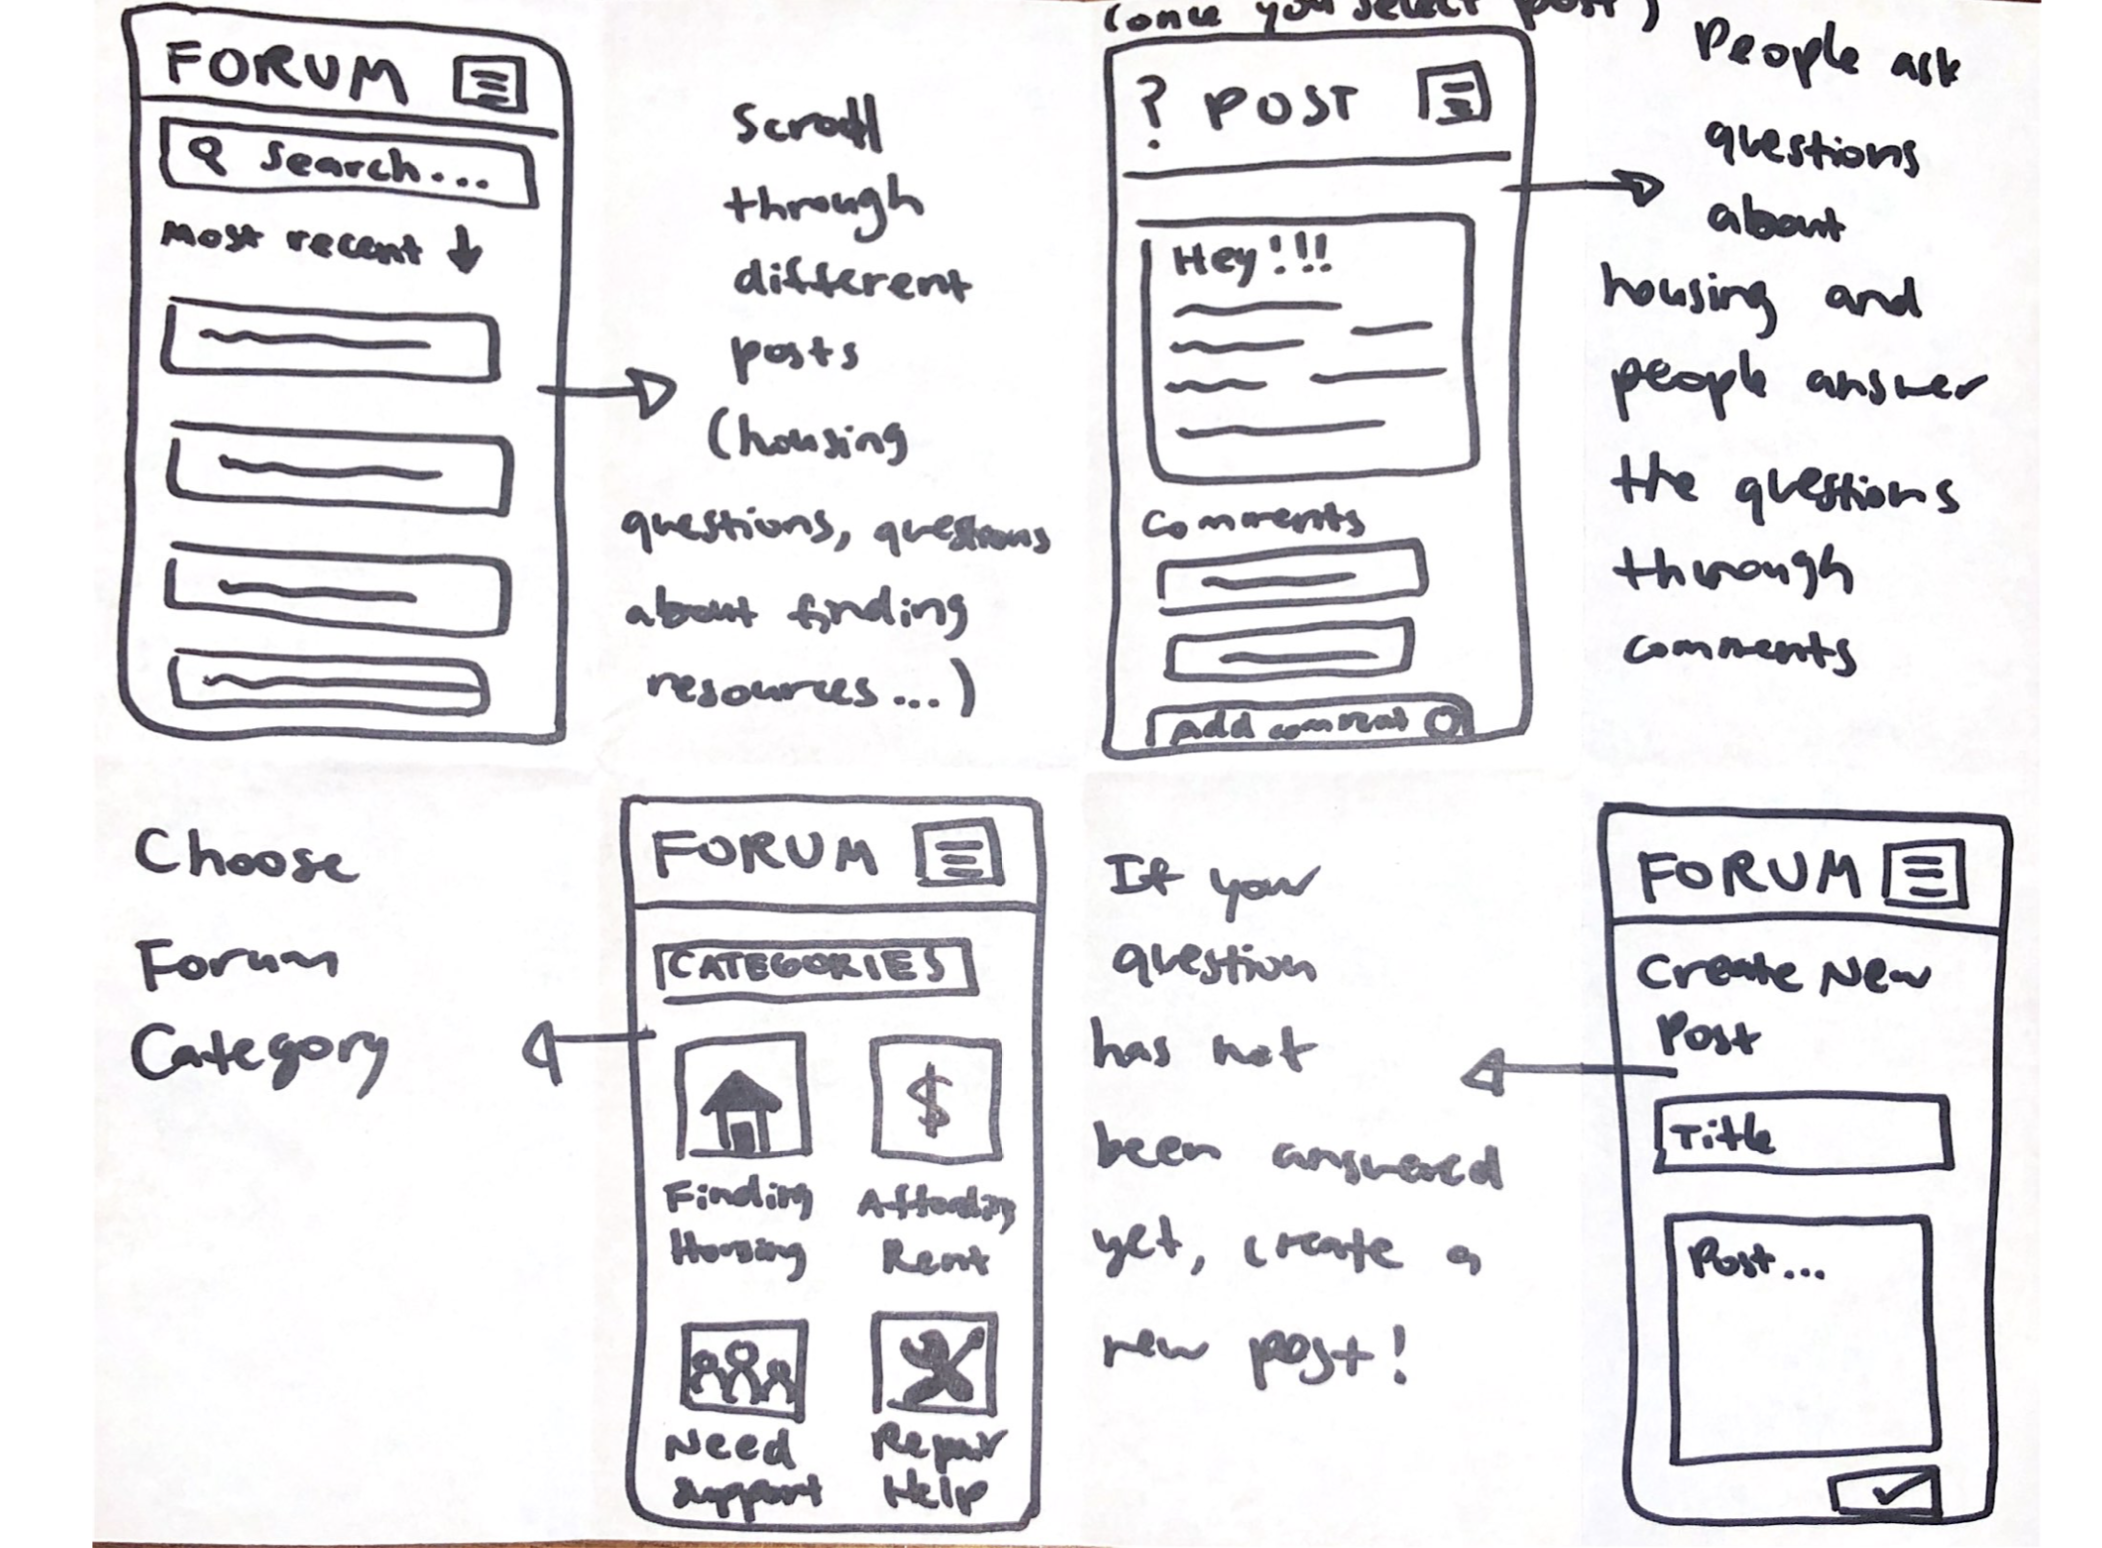 FORUM
Search...
Most recent ↓
Scroll
through
different
posts
(housing
questions, questions
about finding
resources...)
(once you select post)
? POST
Hey!!!
Comments
Add comment
People ask
questions
about
housing and
people answer
the questions
through
comments
Choose
Forum
Category
FORUM
CATEGORIES
Finding
Housing
$
Affording
Rent
Need
Support
Repair
Help
If your
question
has not
been answered
yet, create a
new post!
FORUM
Create New
Post
Title
Post...